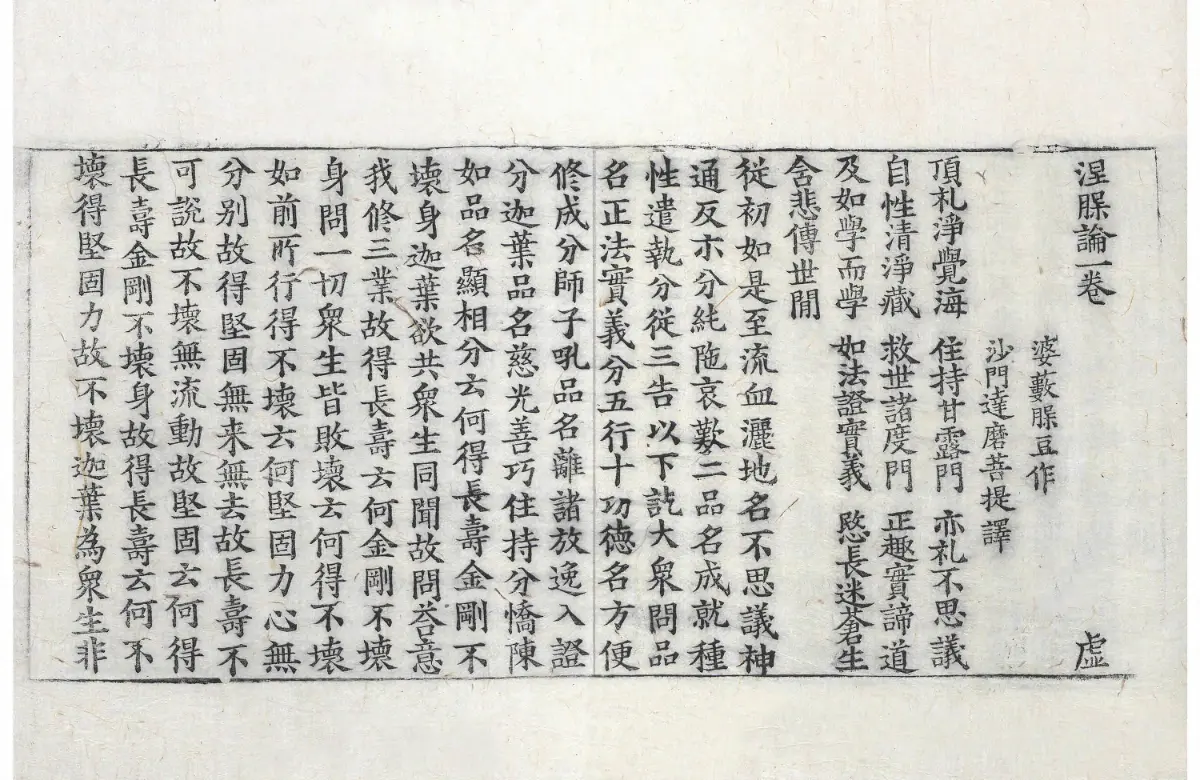 涅槃論一卷 虛
婆藪槃豆作
沙門達磨菩提譯
頂礼淨覺海 住持甘露門 亦礼不思議
自性清淨藏 救世諸度門 正趣實諦道
及如學而學 如法證實義 愍長迷蒼生
含悲傳世閒
從初如是至流血灑地名不思議神
通反示分純陁哀歎二品名成就種
性遣執分從三告以下訖大衆問品
名正法實義分五行十功德名方便
修成分師子吼品名離諸放逸入證
分迦葉品名慈光善巧住持分憍陳
如品名顯相分云何得長壽金剛不
壞身迦葉欲共衆生同聞故問荅意
我修三業故得長壽云何金剛不壞
身問一切衆生皆敗壞云何得不壞
如前所行得不壞云何堅固力心無
分別故得堅固無来無去故長壽不
可說故不壞無流動故堅固云何得
長壽金剛不壞身故得長壽云何不
壞得堅固力故不壞迦葉為衆生非